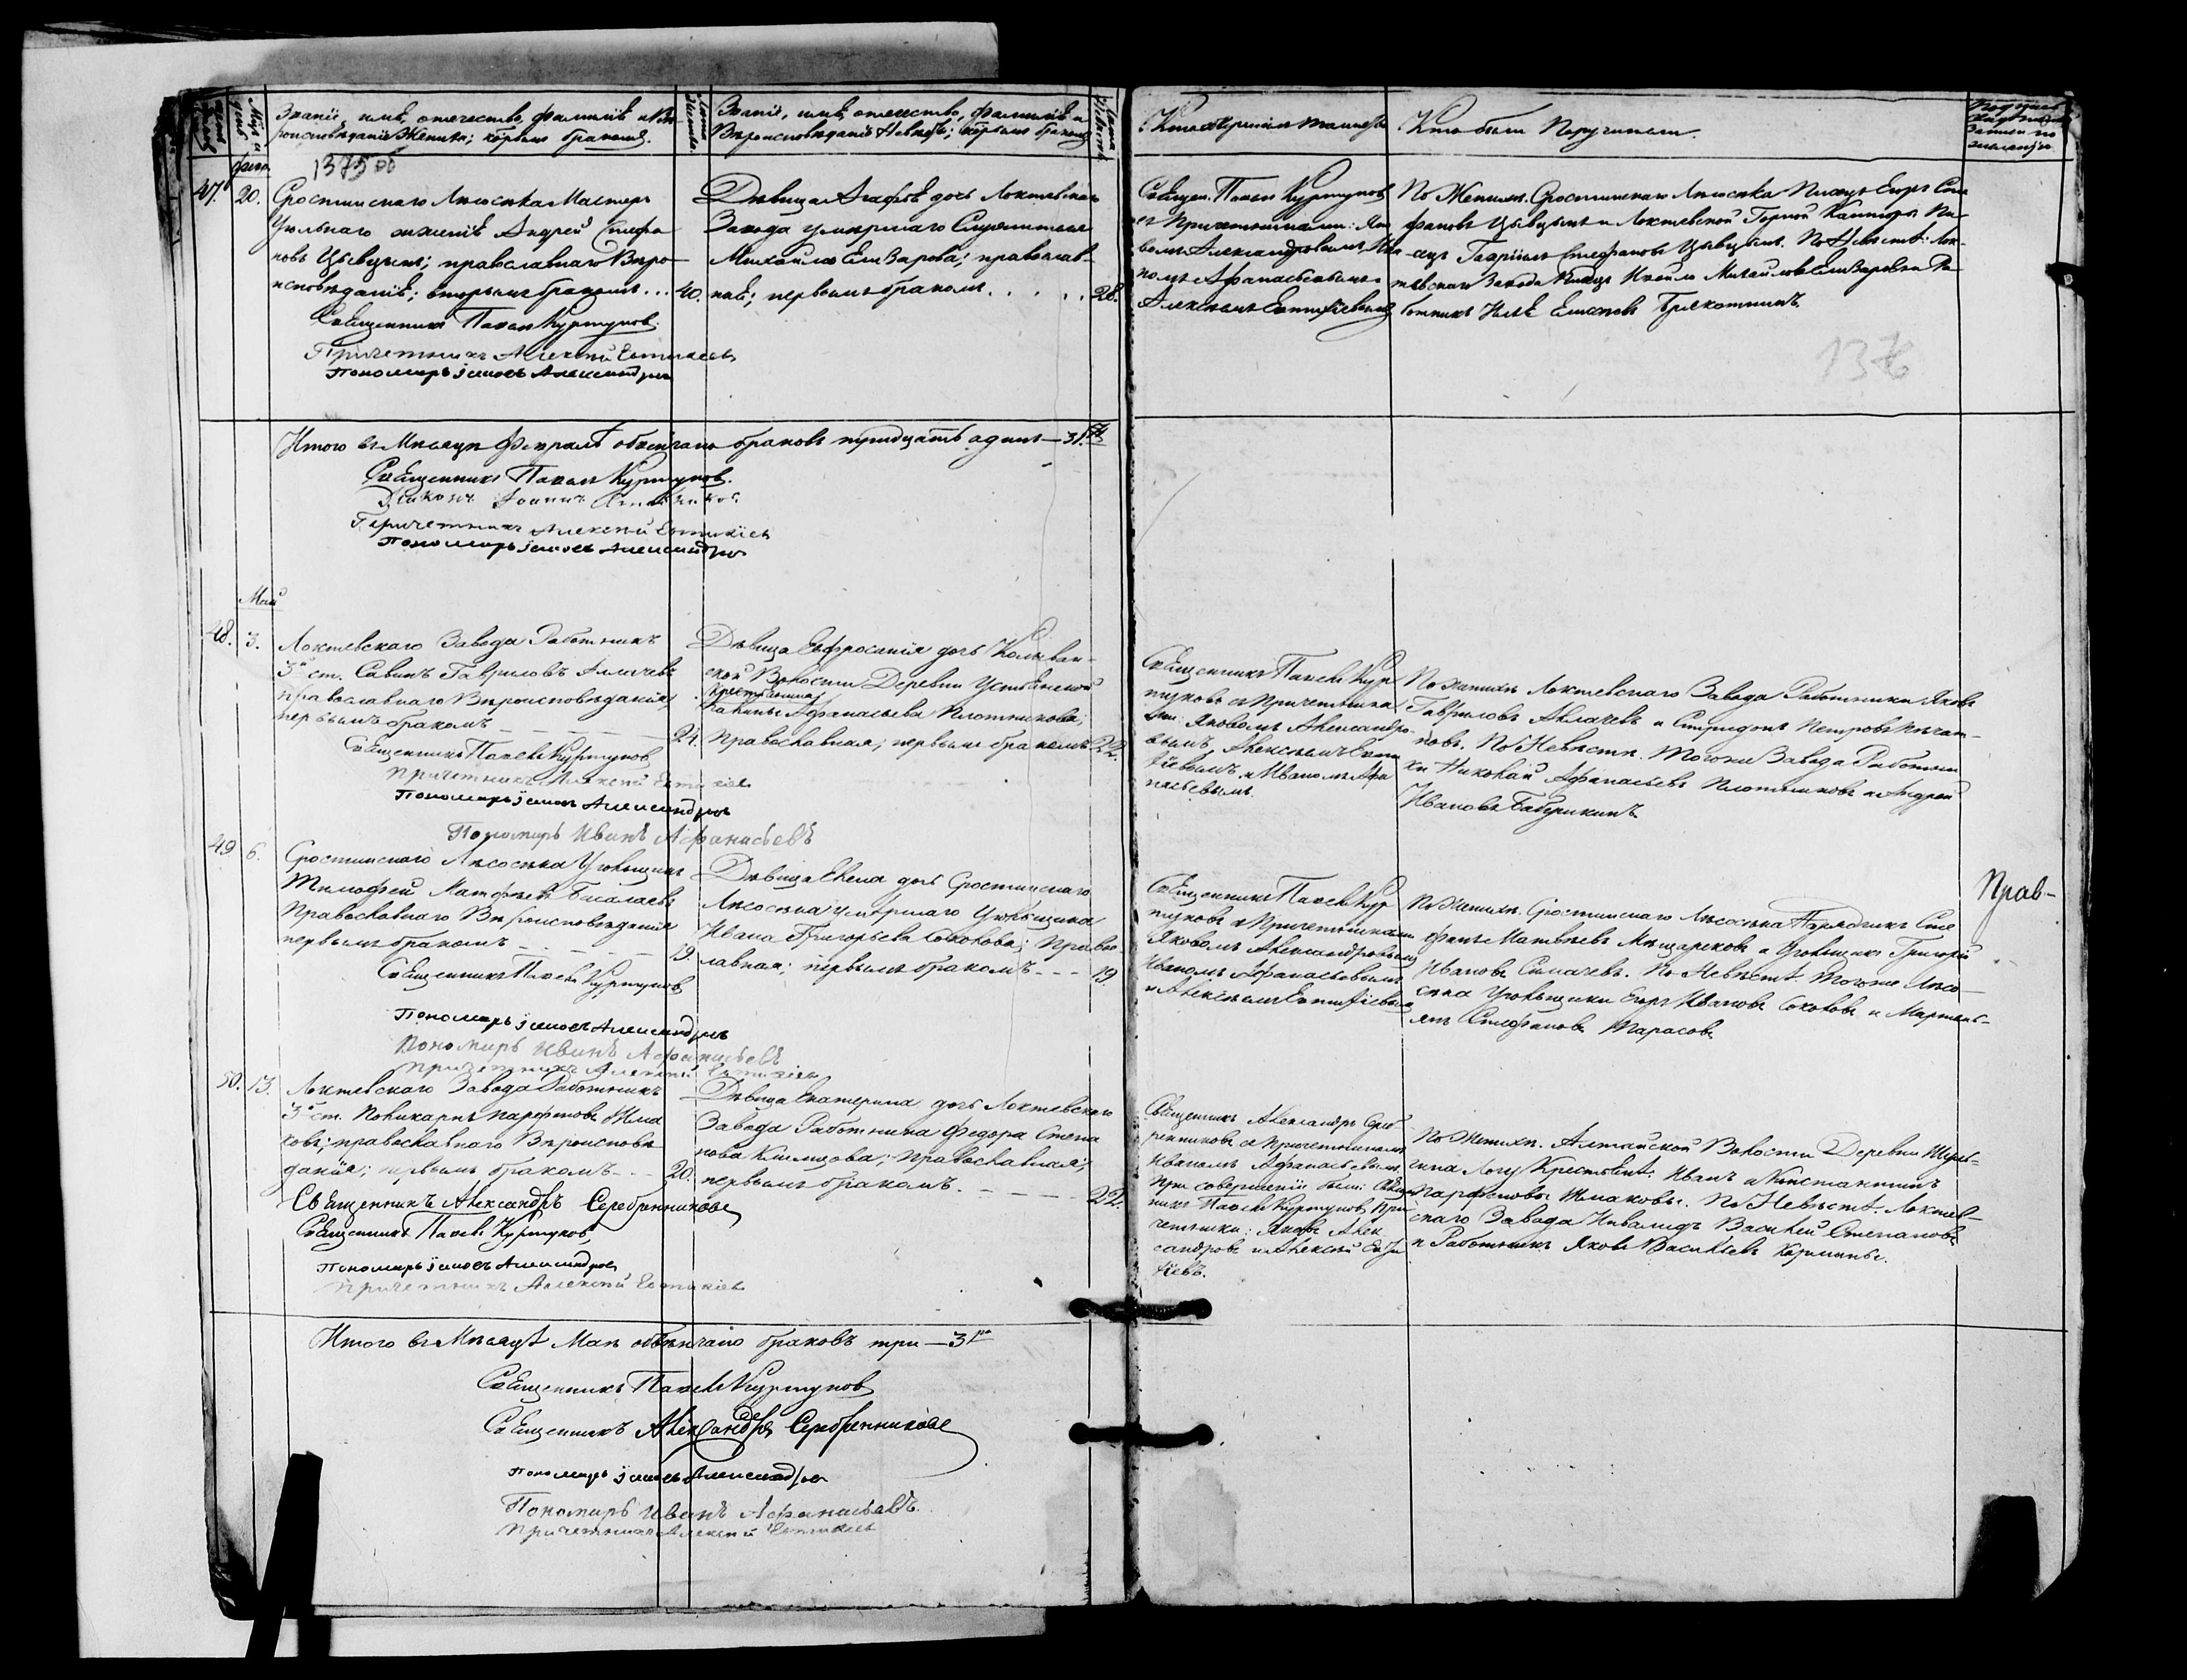 Мѣс. и день
Званіе, имя, отечество, фамилія и Вѣ-
роисповѣданіе Жениха; которымъ бракомъ.
Лѣта Жениха.
Званіе, имя, отечество, фамилія и
Вѣроисповѣданіе Невѣсты; которымъ бракомъ
Лѣта Невѣсты
Кто совершалъ таинство
Кто были Поручители.
1375 об
47. 20.
Сростинскаго Лѣсосѣка Мастеръ
Угольнаго зженія Андрей Стефа-
новъ Цывцынъ; православнаго Вѣро-
исповѣданія; вторымъ бракомъ... 40.
Священникъ Павелъ Куртуковъ.
Причетникъ Алексѣй Евтихіевъ
Пономарь Іаковъ Александровъ
Дѣвица Агафья дочь Локтевскаго
Завода умершаго Служителя
Михаила Елизарова; православ-
ная; первымъ бракомъ. . . . . 28.
Священ. Павелъ Куртуковъ
съ Причетниками: Яко-
вомъ Александровымъ, Ива-
номъ Афанасьевымъ и
Алексѣемъ Евтихіевымъ
По Женихѣ. Сростинскаго Лѣсосѣка Писецъ Егоръ Сте-
фановъ Цывцынъ и Локтевской Горной Канторы Пи-
сецъ Гавріилъ Стефановъ Цывцынъ. По Невѣстѣ: Лок-
тевскаго Завода Писецъ Михайловъ Елизаровъ и Ра-
ботникъ Илья
1376
Итого въ Мѣсяцѣ Февралѣ обвѣнчано браковъ тридцать одинъ — 31.
Священникъ Павелъ Куртуковъ.
Діаконъ Іоаннъ
Причетникъ Алексѣй Евтихіевъ
Пономарь Іаковъ Александровъ
Май
48. 3.
Локтевскаго Завода Работникъ
3й ст. Савинъ Гавриловъ Алачевъ
православнаго Вѣроисповѣданія;
первымъ бракомъ 24.
Священникъ Павелъ Куртуковъ
Причетникъ Алексѣй Евтихіевъ
Пономарь Іаковъ Александровъ
Пономарь Иванъ Афанасьевъ
Дѣвица Евфросинія дочь Колыван-
ской Волости Деревни Устьянской
Крестьянина
Афанасьева Плотникова;
Православная; первымъ бракомъ 22.
Священникъ Павелъ Кур-
туковъ съ Причетника-
ми: Яковомъ Александро-
вымъ, Алексѣемъ Евти-
хіевымъ и Иваномъ Афа-
насьевымъ.
По женихѣ Локтевскаго Завода Работники Яковъ
Гавриловъ Алачевъ и Спиридонъ Петровъ
По Невѣстѣ. Тогоже Завода Работни-
ки Николай Афанасьевъ Плотниковъ и Андрей
Ивановъ Бабушкинъ
49 6.
Сростинскаго Лѣсосѣка Угольщикъ
Тимофей Матфеевъ
Православнаго Вѣроисповѣданія
первымъ бракомъ 19.
Священникъ Павелъ Куртуковъ
Пономарь Іаковъ Александровъ
Пономарь Иванъ Афанасьевъ
Причетникъ Алексѣй Евтихіевъ
Дѣвица Елена дочь Сростинскаго
Лѣсосѣка умершаго Угольщика
Ивана Григорьева Соколова; Правос-
лавная; первымъ бракомъ - - - 19.
Священникъ Павелъ Кур-
туковъ съ Причетниками
Яковомъ Александровымъ
Иваномъ Афанасьевымъ
и Алексѣемъ Евтихіевымъ
По Женихѣ. Сростинскаго Лѣсосѣка Порядчикъ Сте-
фанъ Матвѣевъ и Угольщикъ Григорій
Ивановъ Симачевъ. По Невѣстѣ. Тогоже Лѣсо-
сѣка Угольщики Егоръ Ивановъ Соколовъ и Мартемь-
янъ Стефановъ Тарасовъ
Прав-
50. 13.
Локтевскаго Завода Работникъ
3й ст. Поликарпъ Парфеновъ Шма-
ковъ; православнаго Вѣроисповѣ-
данія; первымъ бракомъ - - 20.
Священникъ Александръ Серебренниковъ
Священникъ Павелъ Куртуковъ
Пономарь Іаковъ Александровъ
Причетникъ Алексѣй Евтихіевъ
Дѣвица Екатерина дочь Локтевскаго
Завода Работника Федора Степа-
нова Климцова; Православная;
первымъ бракомъ. - - - - 22.
Священникъ Александръ Сереб-
ренниковъ съ Причетникомъ
Иваномъ Афанасьевымъ.
При совершеніи были: Священ-
никъ Павелъ Куртуковъ, При-
четники: Яковъ Алек-
сандровъ и Алексѣй Евти-
хіевъ.
По Женихѣ. Алтайской Волости Деревни
Логу Крестьяне Иванъ и Константинъ
Парфеновы Шмаковы. По Невѣстѣ. Локтев-
скаго Завода Инвалидъ Василій Степановъ
и Работникъ Яковъ Васильевъ
Итого въ Мѣсяцѣ Маѣ обвѣнчано браковъ три — 3
Священникъ Павелъ Куртуковъ
Священникъ Александръ Серебренниковъ
Пономарь Іаковъ Александровъ
Пономарь Иванъ Афанасьевъ.
Причетникъ Алексѣй Евтихіевъ